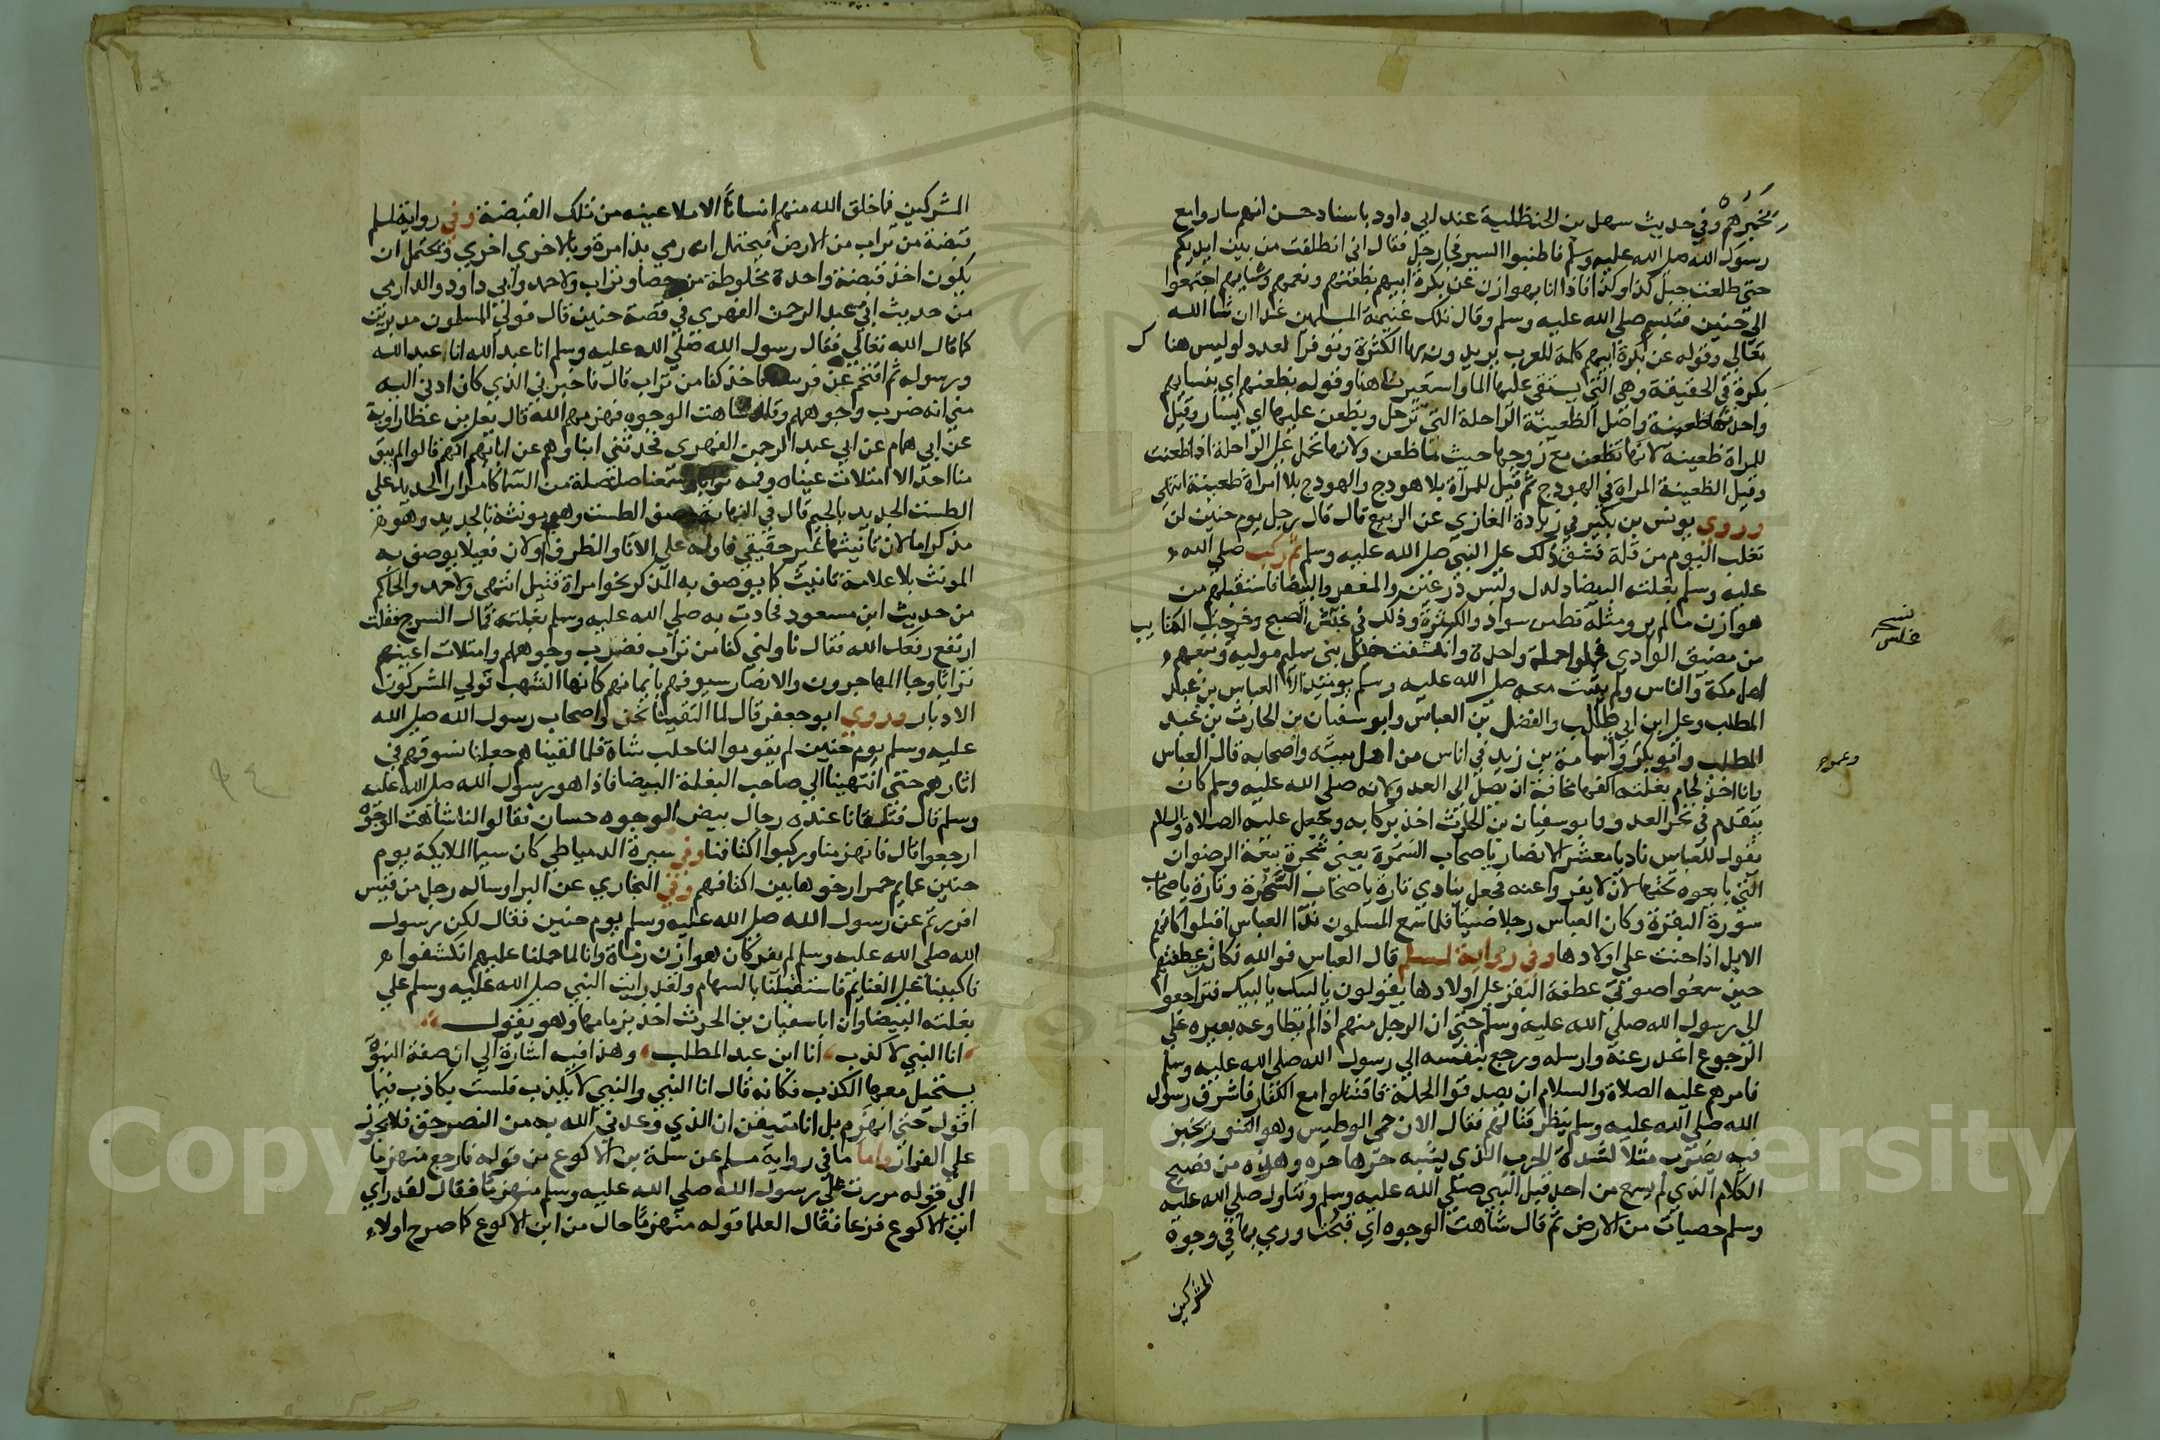 بخبرهم وفي حديث سهل بن الحنظلية عند ابي داود باسناد حسن انهم ساروا مع
رسول الله صلى الله عليه وسلم فاطنبوا السير فجا رجل فقال اني انطلقت من بين ايديكم
حتى طلعت جبل كذا وكذا فاذا انا بهوازن عن بكرة ابيهم بظعنهم ونعمهم وشايهم اجتمعوا
الى حنين فتبسم صلى الله عليه وسلم وقال تلك غنيمة المسلمين غدا ان شا الله
تعالى وقوله عن بكرة ابيهم كلمة للعرب يريدون بها الكثرة وتوفر العدد وليس هنا
بكرة في الحقيقة وهي التي يستقى عليها الما واستعيرت هنا وقوله بظعنهم اي بنسايهم
واحدتها ظعينة واصل الظعينة الراحلة التي ترحل ويظعن عليها اي يسار وقيل
للمراة ظعينة لانها تظعن مع زوجها حيث ما ظعن ولانها تحمل على الراحلة اذا ظعنت
وقيل الظعينة المراة في الهودج ثم قيل للمراة بلا هودج والهودج بلا امراة ظعينة انتهى
وروى يونس بن بكير في زيادة المغازي عن الربيع قال قال رجل يوم حنين لن
نغلب اليوم من قلة فشق ذلك على النبي صلى الله عليه وسلم ثم ركب صلى الله
عليه وسلم بغلته البيضا دلدل ولبس درعين والمغفر والبيضا فاستقبلهم من
هوازن ما لم يروا مثله قط من سواد والكثرة وذلك في غبش الصبح وخرجت الكتايب
من مضيق الوادي فحملوا حملة واحدة وانكشفت خيل بني سليم مولية وتبعهم
اهل مكة والناس ولم يثبت معه صلى الله عليه وسلم يومئذ الا العباس بن عبد
المطلب وعلى ابن ابي طالب والفضل بن العباس وابو سفيان بن الحارث بن عبد
المطلب وابو بكر واسامة بن زيد في اناس من اهل بيته واصحابه قال العباس
وانا اخذ بلجام بغلته اكفها مخافة ان يصل الى العدو لانه صلى الله عليه وسلم كان
يتقدم في نحر العدو وابو سفيان بن الحارث اخذ بركابه وجعل عليه الصلاة والسلام
يقول للعباس ناد يا معشر الانصار يا اصحاب السمرة يعني شجرة بيعة الرضوان
التي بايعوه تحتها لان لا يفروا عنه فجعل ينادي تارة يا اصحاب الشجرة وتارة يا اصحاب
سورة البقرة وكان العباس رجلا صيتا فلما سمع المسلمون ندا العباس اقبلوا كانهم
الابل اذا حنت على اولادها وفي رواية لمسلم قال العباس فوالله لكان عطفتهم
حين سمعوا صوتي عطفة البقر على اولادها يقولون يا لبيك يا لبيك فتراجعوا
الى رسول الله صلى الله عليه وسلم حتى ان الرجل منهم اذا لم يطاوعه بعيره على
الرجوع انحدر عنه وارسله ورجع بنفسه الى رسول الله صلى الله عليه وسلم
فامرهم عليه الصلاة والسلام ان يصدقوا الحملة فاقتتلوا مع الكفار فاشرف رسول
الله صلى الله عليه وسلم ينظر قتالهم فقال الان حمى الوطيس وهو التنور يخبز
فيه يضرب مثلا لشدة الحرب الذي يشبه حرها حره وهذه من فصيح
الكلام الذي لم يسمع من احد قبل النبي صلى الله عليه وسلم وتناول صلى الله عليه
وسلم حصيات من الارض ثم قال شاهت الوجوه اي قبحت ورمى بها في وجوه
المشركين
نسخه
غلس
وعمر
المشركين فما خلق الله منهم انسانا الا ملا عينيه من تلك القبضة وفي رواية لمسلم
قبضة من تراب من الارض فيحتمل انه رمى بذا مرة وبالاخرى اخرى ويحتمل ان
يكون اخذ قبضة واحدة مخلوطة من حصا وتراب ولاحمد وابي داود والدارمي
من حديث ابي عبد الرحمن الفهري في قصة حنين قال فولى المسلمون مدبرين
كما قال الله تعالى فقال رسول الله صلى الله عليه وسلم انا عبد الله انا عبد الله
ورسوله ثم اقتحم عن فرسه فاخذ كفا من تراب قال فاخبرني الذي كان ادنى اليه
مني انه ضرب وجوههم وقال شاهت الوجوه فهزمهم الله قال يعلى بن عطا راوية
عن ابي همام عن ابي عبد الرحمن الفهري فحدثني ابناوهم عن ابايهم انهم قالوا لم يبق
منا احد الا امتلات عيناه وفمه ترابا وسمعنا صلصلة من السما كامرار الحديد على
الطست الجديد بالجيم قال في النهاية وصف الطست وهي مونثة بالجديد وهو
مذكر اما لان تانيثها غير حقيقي فاوله على الانا والظرف او لان فعيلا يوصف به
المونث بلا علامة تانيث كما يوصف به المذكر نحو امراة قتيل انتهى ولاحمد والحاكم
من حديث ابن مسعود فحادت به صلى الله عليه وسلم بغلته فمال السرج فقلت
ارتفع رفعك الله فقال ناولني كفا من تراب فضرب وجوههم وامتلات اعينهم
ترابا وجا المهاجرون والانصار سيوفهم بايمانهم كانها الشهب فولى المشركون
الادبار وروى ابو جعفر قال لما التقينا نحن واصحاب رسول الله صلى الله
عليه وسلم يوم حنين لم يقوموا لنا حلب شاة فلما لقيناهم جعلنا نسوقهم في
اثارهم حتى انتهينا الى صاحب البغلة البيضا فاذا هو رسول الله صلى الله عليه
وسلم قال فتلقانا عنده رجال بيض الوجوه حسان فقالوا لنا شاهت الوجوه
ارجعوا قال فانهزمنا وركبوا اكتافنا وفي سيرة الدمياطي كان سيما الملايكة يوم
حنين عمايم حمر ارخوها بين اكتافهم وفي البخاري عن البرا وساله رجل من قيس
افررتم عن رسول الله صلى الله عليه وسلم يوم حنين فقال لكن رسول
الله صلى الله عليه وسلم لم يفر كان هوازن رماة وانا لما حملنا عليهم انكشفوا
فاكببنا على الغنايم فاستقبلنا بالسهام ولقد رايت النبي صلى الله عليه وسلم على
بغلته البيضا وان ابا سفيان بن الحرث اخذ بزمامها وهو يقول
انا النبي لا كذب انا ابن عبد المطلب وهذا فيه اشارة الى ان صفة النبوة
يستحيل معها الكذب فكانه قال انا النبي والنبي لا يكذب فلست بكاذب فيما
اقول حتى انهزم بل انا متيقن ان الذي وعدني الله به من النصر حق فلا يجوز
على الفرار واما ما في رواية مسلم عن سلمة بن الاكوع من قوله فارجع منهزما
الى قوله مررت على رسول الله صلى الله عليه وسلم منهزما فقال لقد راى
ابن الاكوع فزعا فقال العلما قوله منهزما حال من ابن الاكوع كما صرح اولا
Copyright © King Saud University